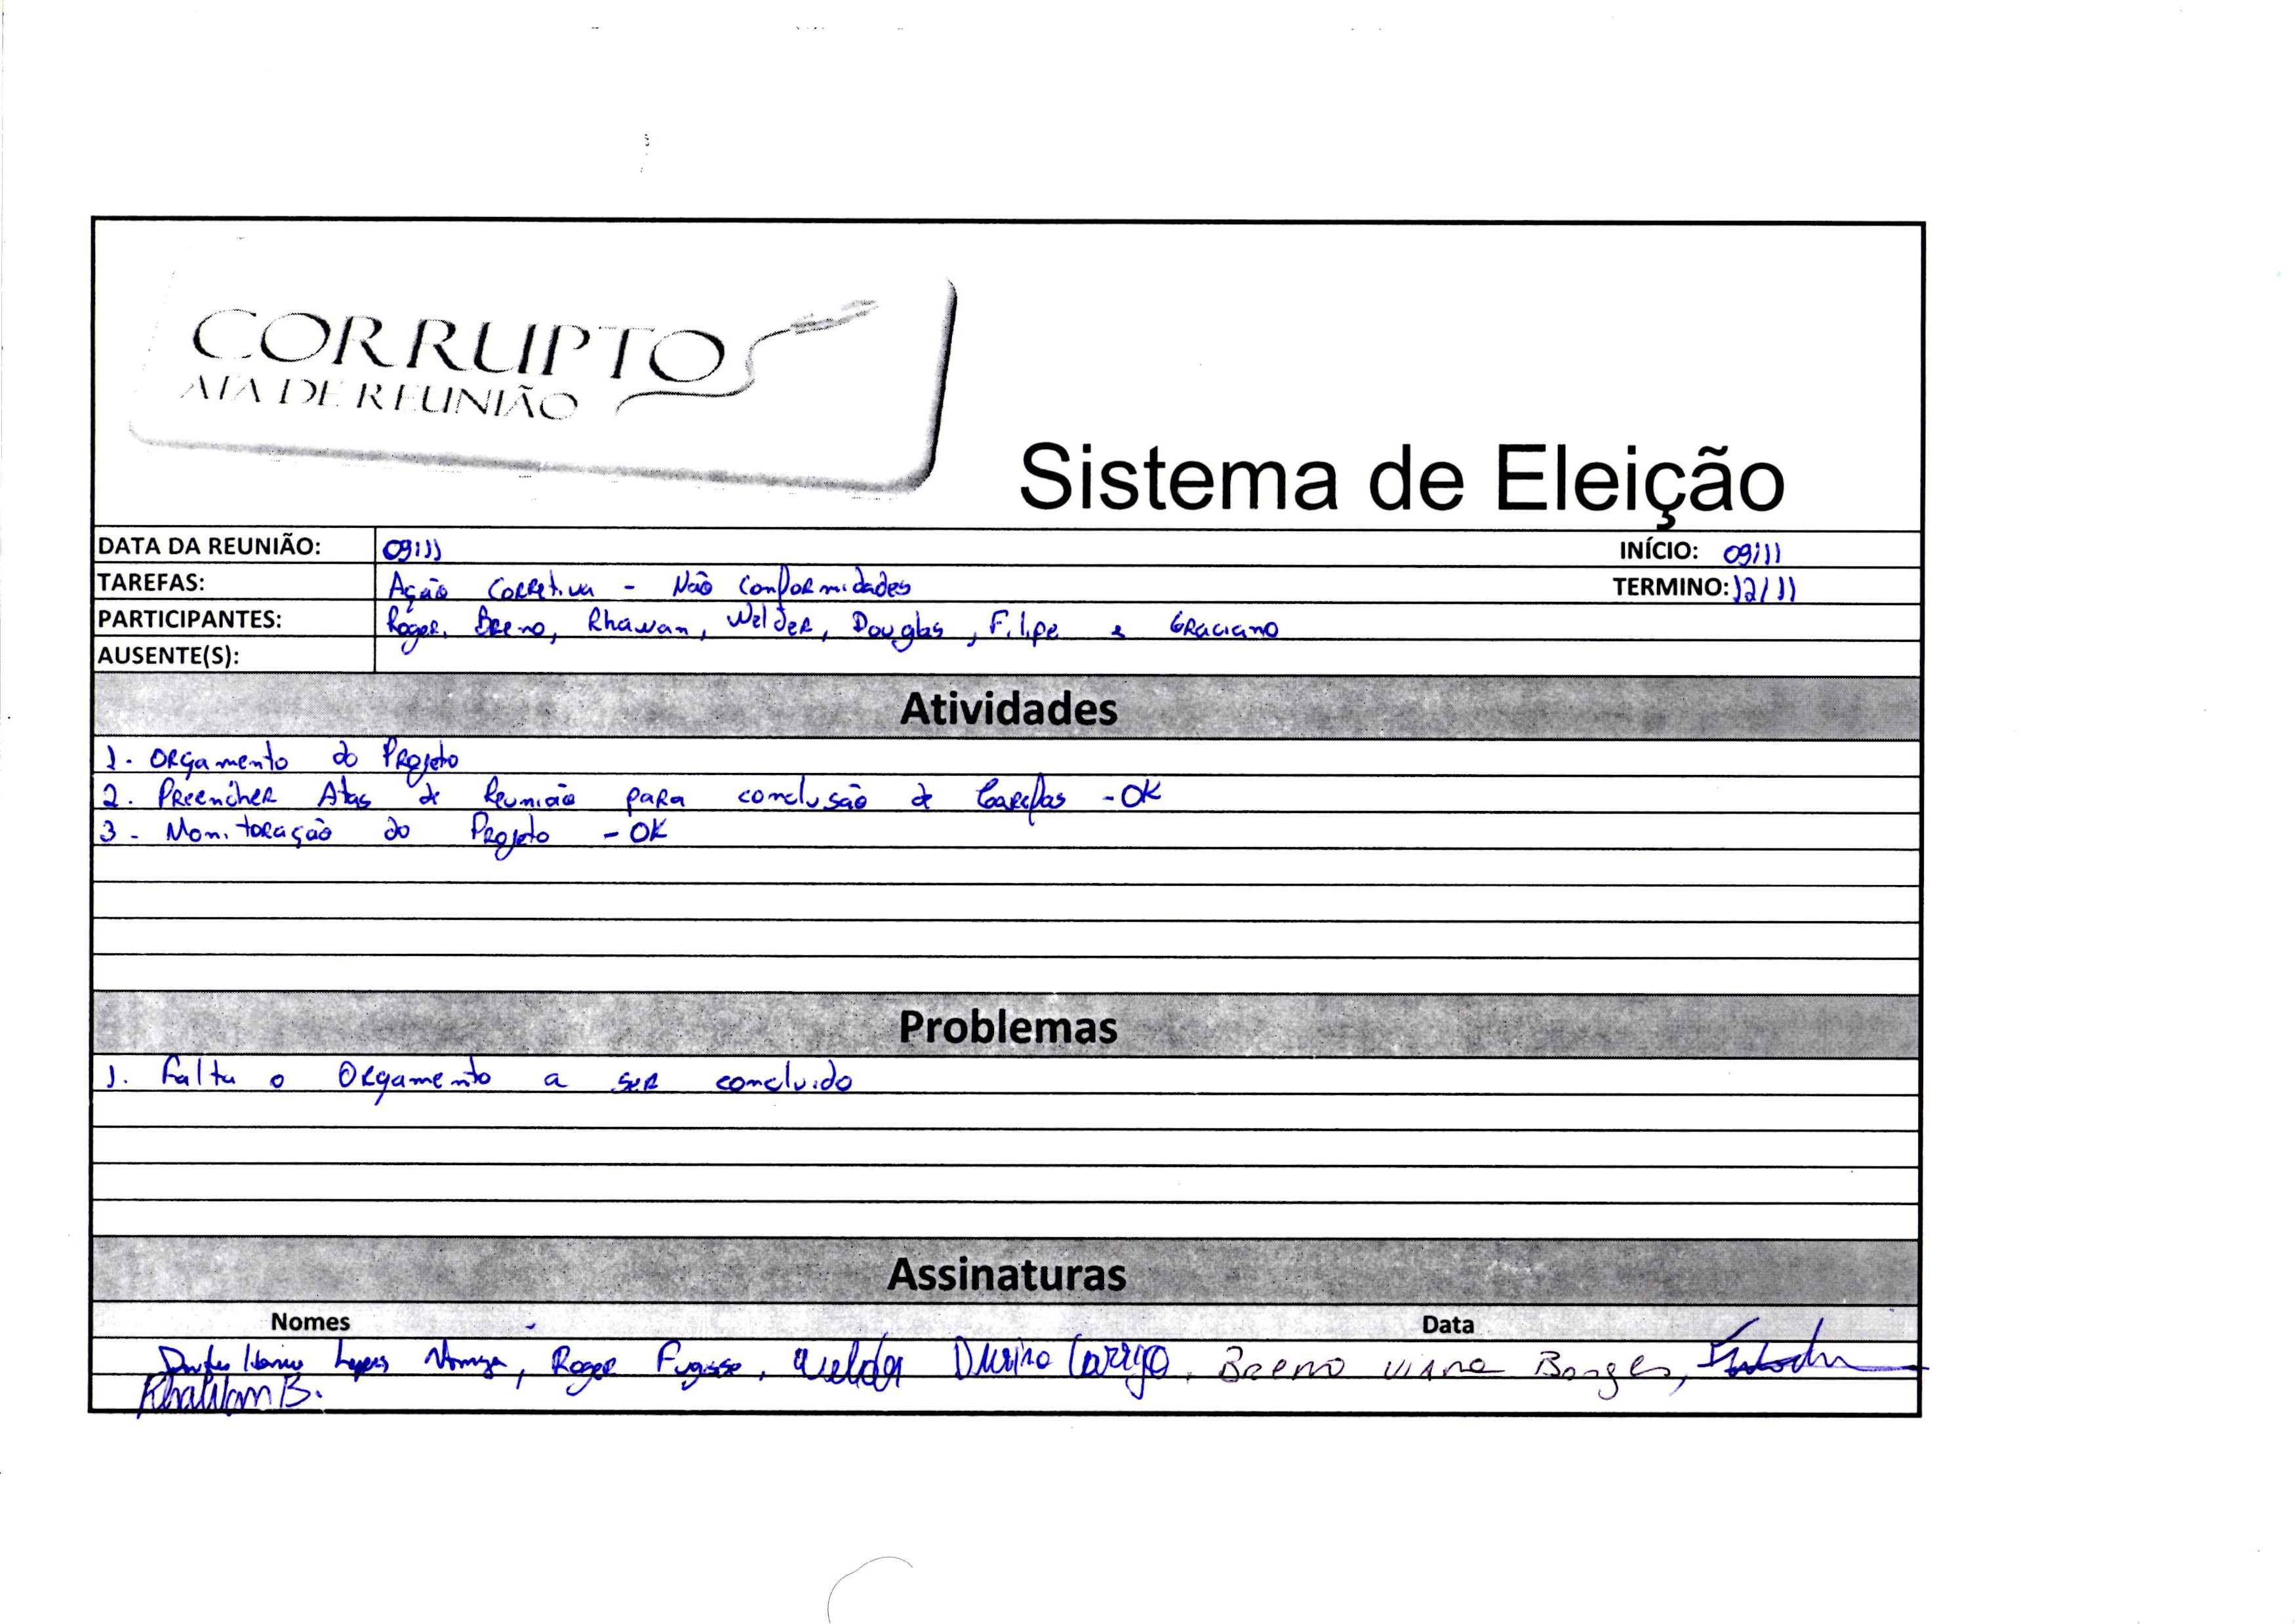 CORRUPTO
ATA DE REUNIÃO
Sistema de Eleição
DATA DA REUNIÃO: 09/11 INÍCIO: 09/11
TAREFAS: Ação Corretiva - Não Conformidades TERMINO: 12/11
PARTICIPANTES: Roger, Breno, Rhawan, Welder, Douglas, Filipe e Graciano
AUSENTE(S):
Atividades
1. Orçamento do Projeto
2. Preencher Atas de Reunião para conclusão de tarefas - OK
3 - Monitoração do Projeto - OK
Problemas
1. Falta o Orçamento a ser concluido
Assinaturas
Nomes Data
Lopes , Roger , Welder Carrijo, Breno Viana Borges,
Rhawan B.